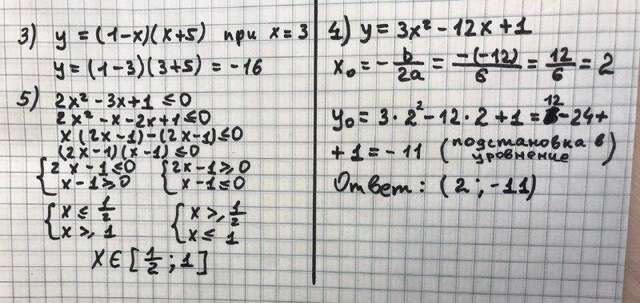 3) y = (1-x)(x+5) при x=3
y = (1-3)(3+5) = -16
5) 2x² - 3x + 1 ≤ 0
2x² - x - 2x + 1 ≤ 0
x(2x-1) - (2x-1) ≤ 0
(2x-1)(x-1) ≤ 0
{ 2x-1 ≤ 0 { 2x-1 ≥ 0
{ x-1 ≥ 0 { x-1 ≤ 0
{ x ≤ 1/2 { x ≥ 1/2
{ x ≥ 1 { x ≤ 1
x ∈ [1/2 ; 1]
4) y = 3x² - 12x + 1
x₀ = - b/2a = -(-12)/6 = 12/6 = 2
y₀ = 3·2² - 12·2 + 1 = 12 - 24 +
+ 1 = -11 (подстановка в
уровнение)
Ответ: (2 ; -11)